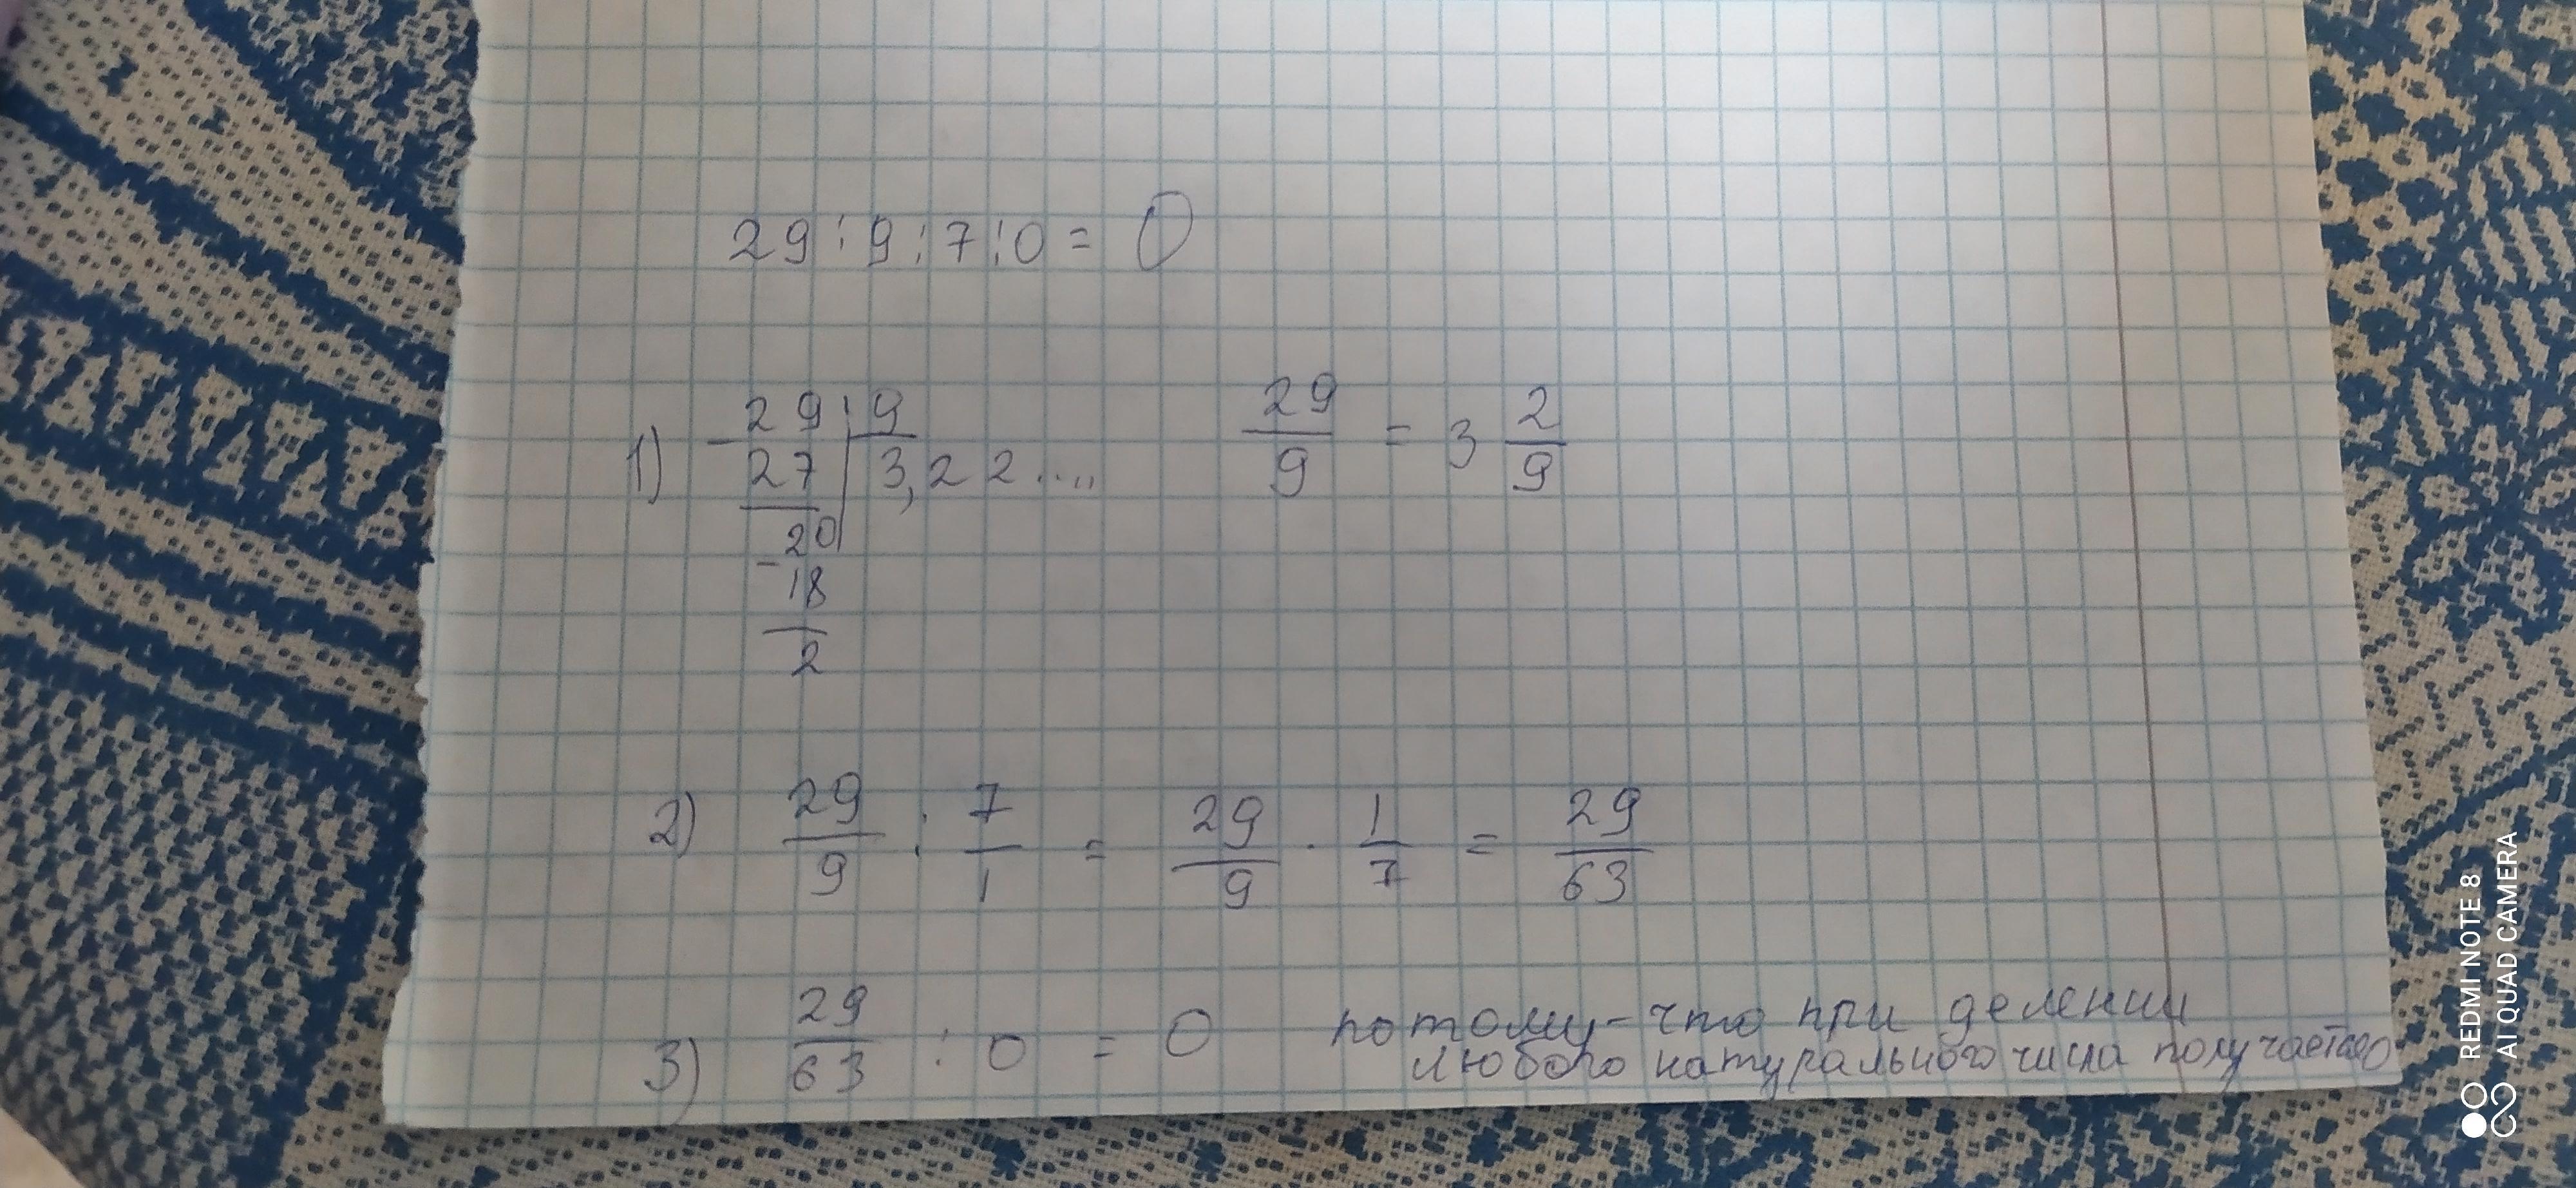 29:9:7:0= 0
1) 29 9 29/9 = 3 2/9
- 27 3,22....
20
- 18
2
2) 29/9 : 7/1 = 29/9 · 1/7 = 29/63
3) 29/63 : 0 = 0 потому-что при делении
любого натурального числа получается 0
REDMI NOTE 8
AI QUAD CAMERA